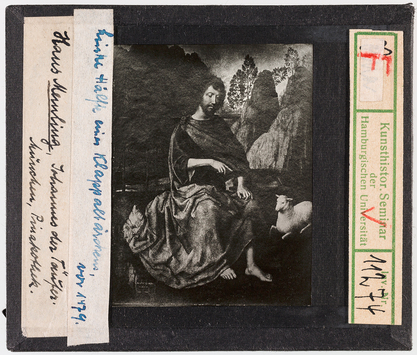 Hans Memling, Johannes der Täufer.
München, Pinakothek.
Linke Hälfte eines Klappaltärchens,
vor 1479.
F
Kunsthistor. Seminar
der
Hamburgischen Universität
Inv. Nr.